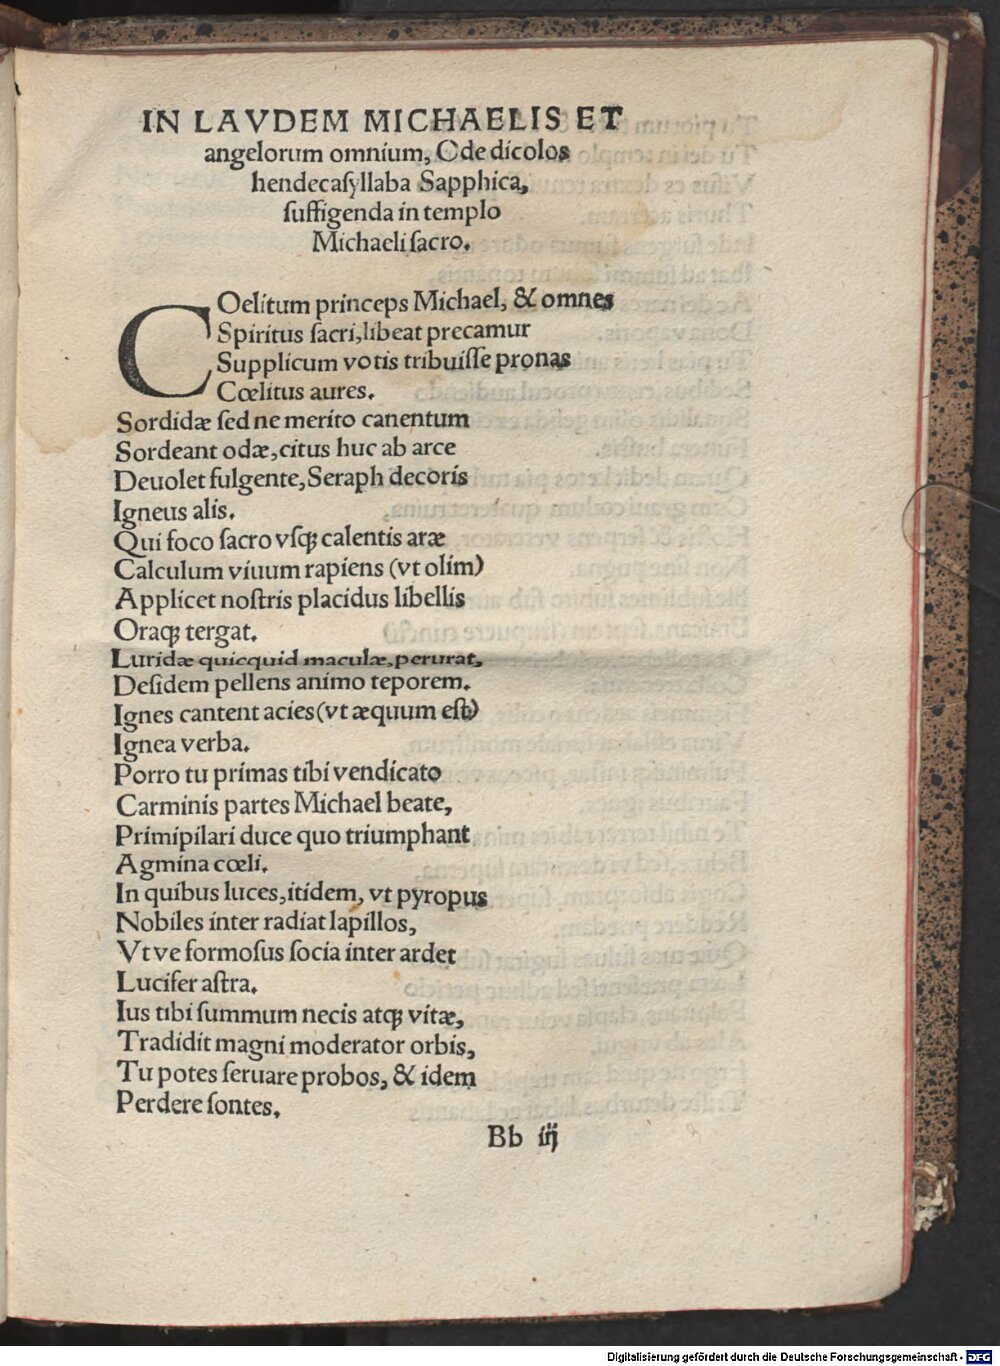 IN LAVDEM MICHAELIS ET
angelorum omnium, Ode dicolos
hendecaſyllaba Sapphica,
ſuffigenda in templo
Michaeli ſacro.
COelitum princeps Michael, & omnes
Spiritus ſacri, libeat precamur
Supplicum votis tribuiſſe pronas
Cœlitus aures.
Sordidæ ſed ne merito canentum
Sordeant odæ, citus huc ab arce
Deuolet fulgente, Seraph decoris
Igneus alis.
Qui foco ſacro vſqꝫ calentis aræ
Calculum viuum rapiens (vt olim)
Applicet noſtris placidus libellis
Oraqꝫ tergat.
Luridæ quicquid maculæ, perurat,
Deſidem pellens animo teporem.
Ignes cantent acies (vt æquum eſt)
Ignea verba.
Porro tu primas tibi vendicato
Carminis partes Michael beate,
Primipilari duce quo triumphant
Agmina cœli.
In quibus luces, itidem, vt pyropus
Nobiles inter radiat lapillos,
Vt ve formoſus ſocia inter ardet
Lucifer aſtra.
Ius tibi ſummum necis atqꝫ vitæ,
Tradidit magni moderator orbis,
Tu potes ſeruare probos, & idem
Perdere ſontes.
Bb iij
Digitalisierung gefördert durch die Deutsche Forschungsgemeinschaft - DFG